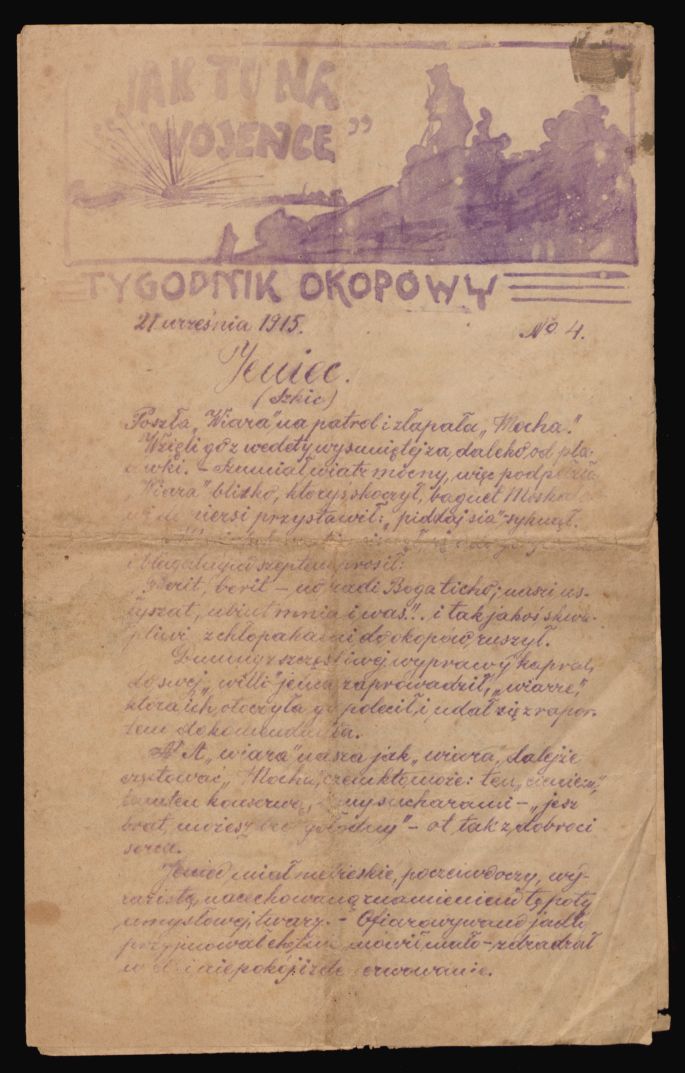 JAK TO NA
"WOJENCE"
TYGODNIK OKOPOWY
21 września 1915. No 4.
Jeniec.
(Szkic)
Poszła „Wiara" na patrol i złapała „Mocha."
Wzięli go z wedety wysuniętej za daleko, od pla-
cówki. – Szumiał wiatr mocny, więc podpełzła
„Wiara" blizko, któryś skoczył, bagnet Moska
piersi przystawił: „piddaj sia" – syknął.
i błagalnym szeptem prosił:
berit, berit – no radi Boga ticho; naszi us-
łyszat, ubiut mnia i was"!. i tak jakoś skwa-
pliwi z chłopakami do okopów, ruszył.
Dumny z szczęśliwej wyprawy kapral,
do swej „willi" jeńca zaprowadził, „wiarze",
która ich otoczyła go polecił, i udał się z rapor-
tem do komendanta.
A „wiara" nasza jak „wiara", dalejże
częstować „Mocha", czem kto może: ten
tamten konserwę, sucharami – „jesz
brat, możesz głodny" – ot, tak z dobroci
serca.
Jeniec miał niebieskie, poczciwe oczy, wy-
razistą, nacechowaną znamieniem tępoty
umysłowej, twarz. – Ofiarowywane jadło
przyjmował chętnie mówił mało – zdradzał
niepokój i zde erwowanie.